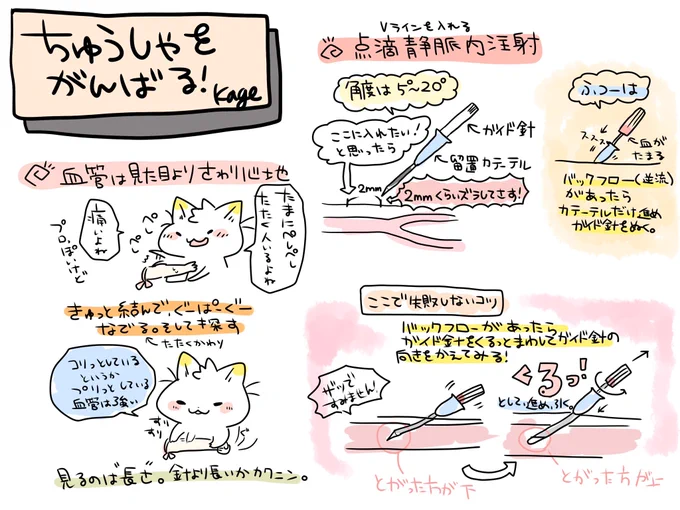 ちゅうしゃを
がんばる!
Kage
血管は見た目よりさわり心地
たまにペしペし
たたく人いるよね
ペし
ペし
ペし
痛いよね
プロっぽいけど
きゅっと結んで、ぐーぱーぐー
なでる。そして探す
たたくかわり
コリっとしている
というか
プリっとしている
血管は強い
すり
すり
見るのは長さ。針より長いかカクニン。
Vラインを入れる
点滴静脈内注射
角度は5°~20°
ここに入れたい!
と思ったら
ガイド針
留置カテーテル
2mm
2mmくらいズラしてさす!
ふつーは
スススス
血が
たまる
バックフロー(逆流)
があったら
カテーテルだけ進め
ガイド針をぬく。
ここで失敗しないコツ
バックフローがあったら
ガイド針をくるっとまわしてガイド針の
向きをかえてみる!
ザツで
すみません!
くるっ!
として、進め、引く。
とがった方が下
とがった方が上